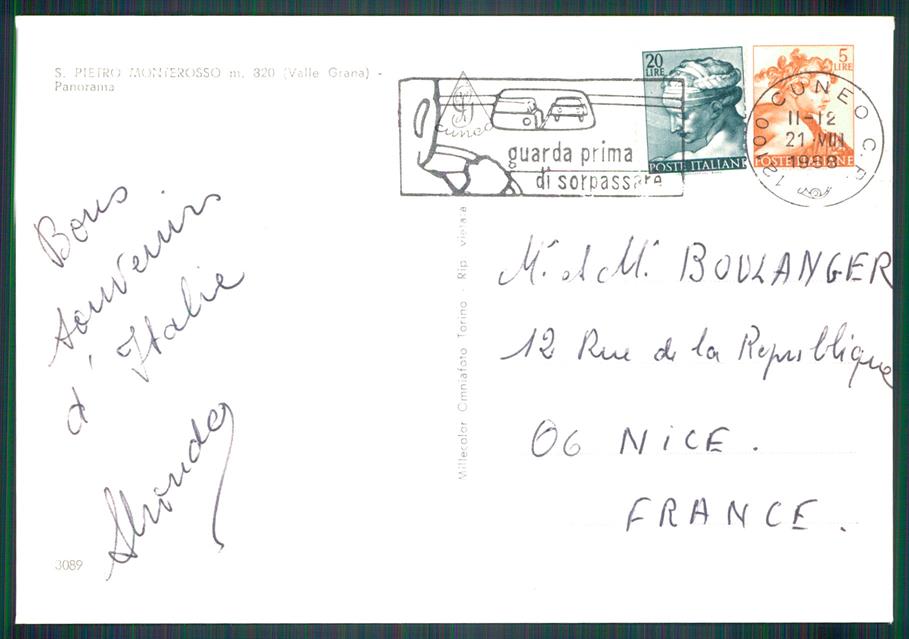 S. PIETRO MONTEROSSO m. 820 (Valle Grana) -
Panorama
cuneo
guarda prima
di sorpassare
20
LIRE
POSTE ITALIANE
5
LIRE
POSTE ITALIANE
12100 CUNEO C.P.
11-12
21 VIII
1968
Bons
souvenirs
d'Italie
3089
Millecolor Omniafoto Torino - Rip vietata
Mr. et Me. BOULANGER
12 Rue de la République
06 NICE.
FRANCE.